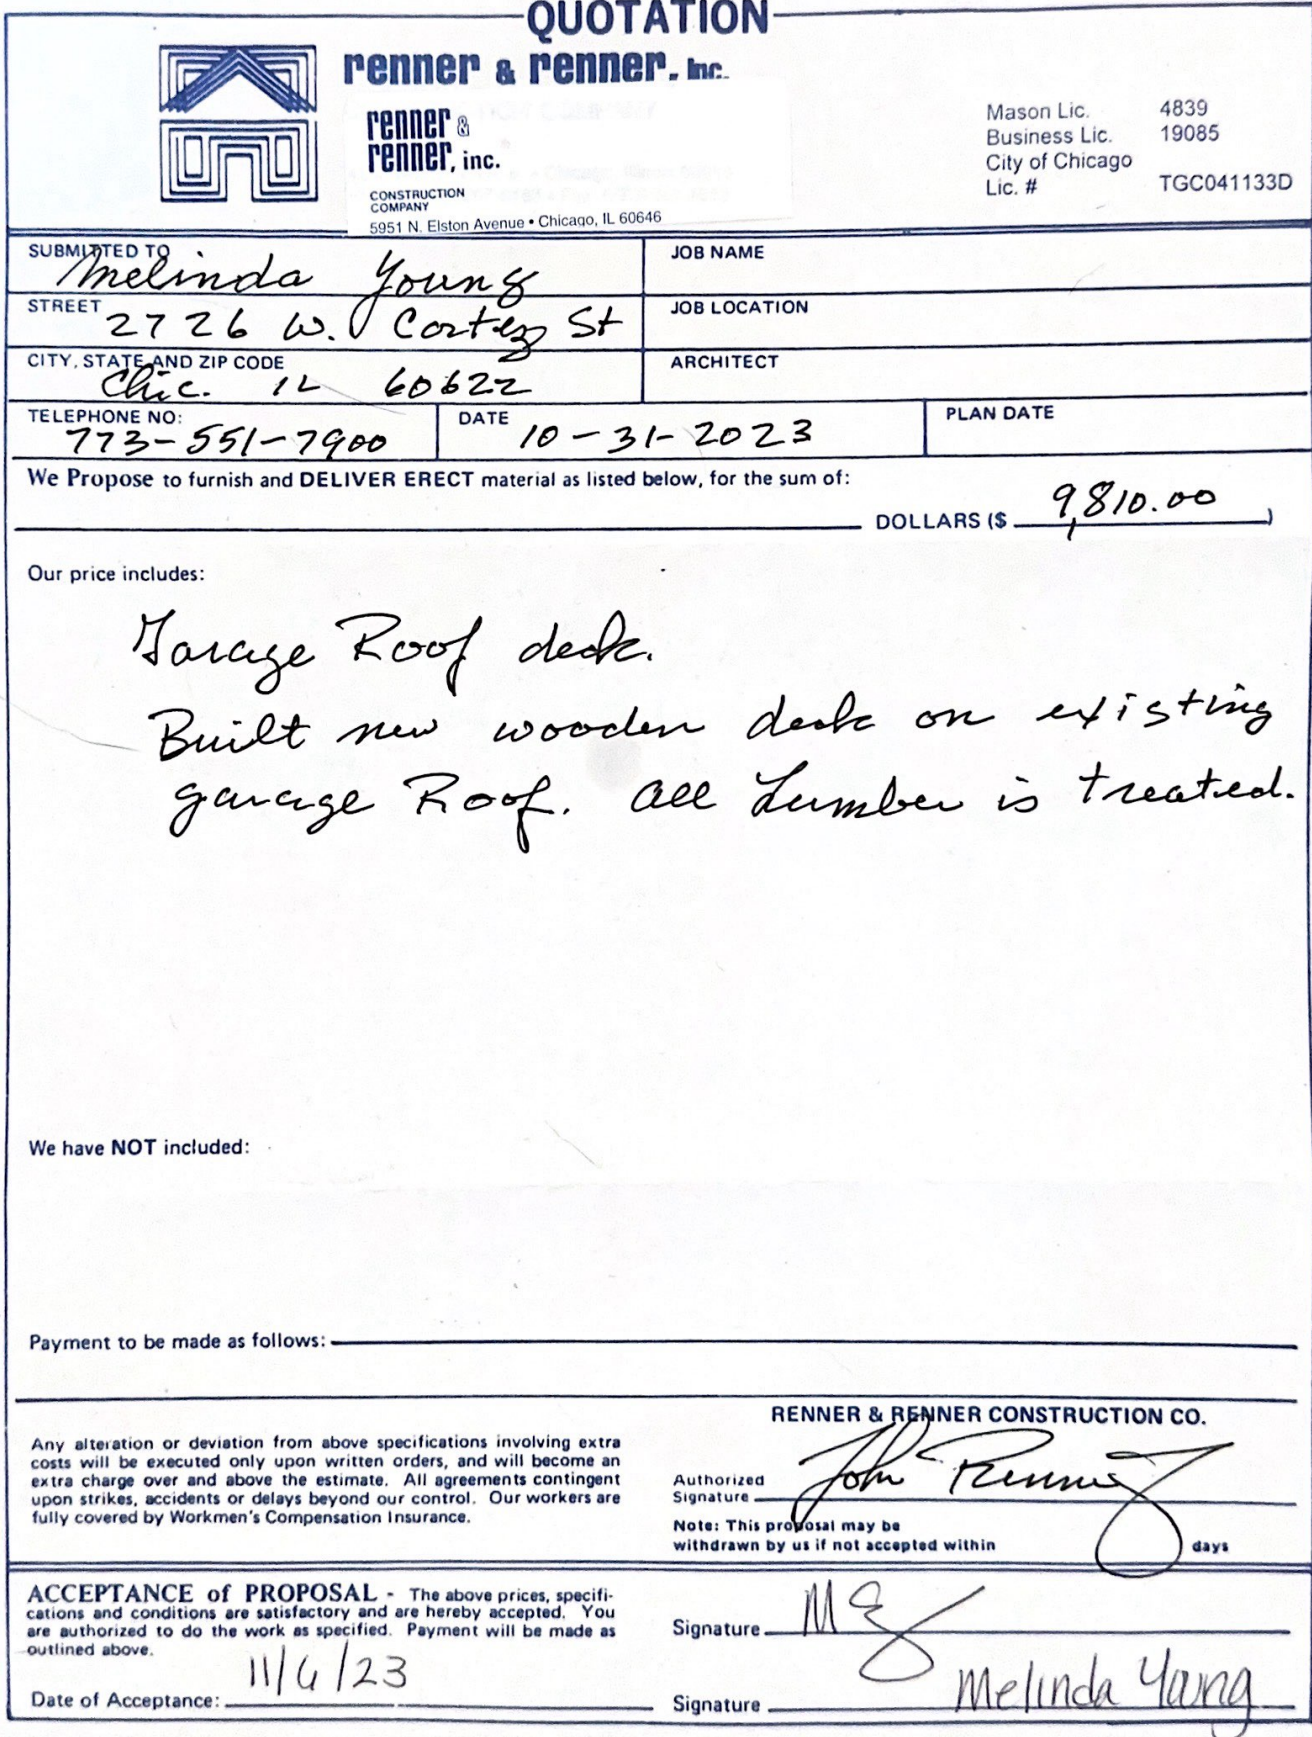 QUOTATION
renner & renner, Inc.
renner &
renner, inc.
CONSTRUCTION
COMPANY
5951 N. Elston Avenue • Chicago, IL 60646
Mason Lic. 4839
Business Lic. 19085
City of Chicago
Lic. # TGC041133D
SUBMITTED TO Melinda Young
JOB NAME
STREET 2726 W. Cortez St
JOB LOCATION
CITY, STATE AND ZIP CODE Chic. IL 60622
ARCHITECT
TELEPHONE NO: 773-551-7900
DATE 10-31-2023
PLAN DATE
We Propose to furnish and DELIVER ERECT material as listed below, for the sum of:
DOLLARS ($ 9,810.00 )
Our price includes:
Garage Roof deck.
Built new wooden deck on existing
garage Roof. All Lumber is treated.
We have NOT included:
Payment to be made as follows:
RENNER & RENNER CONSTRUCTION CO.
Any alteration or deviation from above specifications involving extra
costs will be executed only upon written orders, and will become an
extra charge over and above the estimate. All agreements contingent
upon strikes, accidents or delays beyond our control. Our workers are
fully covered by Workmen's Compensation Insurance.
Authorized
Signature John Renner
Note: This proposal may be
withdrawn by us if not accepted within days
ACCEPTANCE of PROPOSAL - The above prices, specifi-
cations and conditions are satisfactory and are hereby accepted. You
are authorized to do the work as specified. Payment will be made as
outlined above.
Date of Acceptance: 11/6/23
Signature
Signature Melinda Young